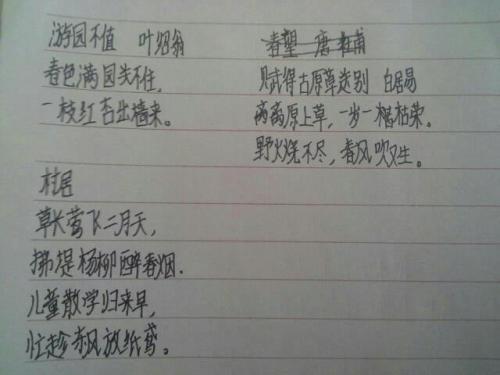 游园不值 叶绍翁
春色满园关不住，
一枝红杏出墙来。
春望 唐 杜甫
赋得古原草送别 白居易
离离原上草，一岁一枯荣。
野火烧不尽，春风吹又生。
村居
草长莺飞二月天，
拂堤杨柳醉春烟.
儿童散学归来早，
忙趁东风放纸鸢。